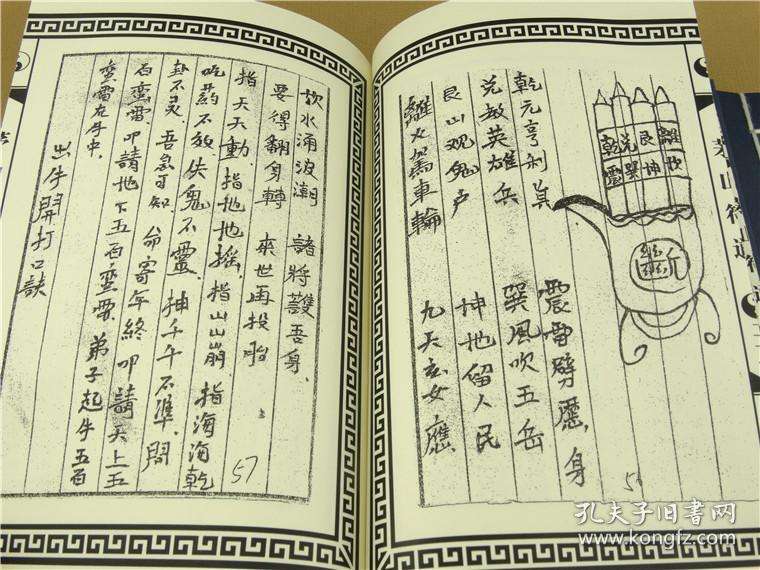 離坎
艮坤
兌巽
乾震
乾元亨利貞 震雷劈靂身
兌教英雄兵 巽風吹五岳
艮山观鬼 坤地留人民
離火駕車輪 九天玄女應
坎水涌波潮 諸將護吾身、
要得翻身轉 來世再投胎
指天天動、指地地搖、指山山崩 指海海乾
吃药不放、失鬼不靈、抻千午不準、問
卦不灵、吾急可知、命寄年終叩請天上五
百蛮雷、叩請地下五百蛮雷 弟子起牛五百
蛮雷在牛中、
出牛開打口訣
57
茅山符道
孔夫子旧書网
www.kongfz.com